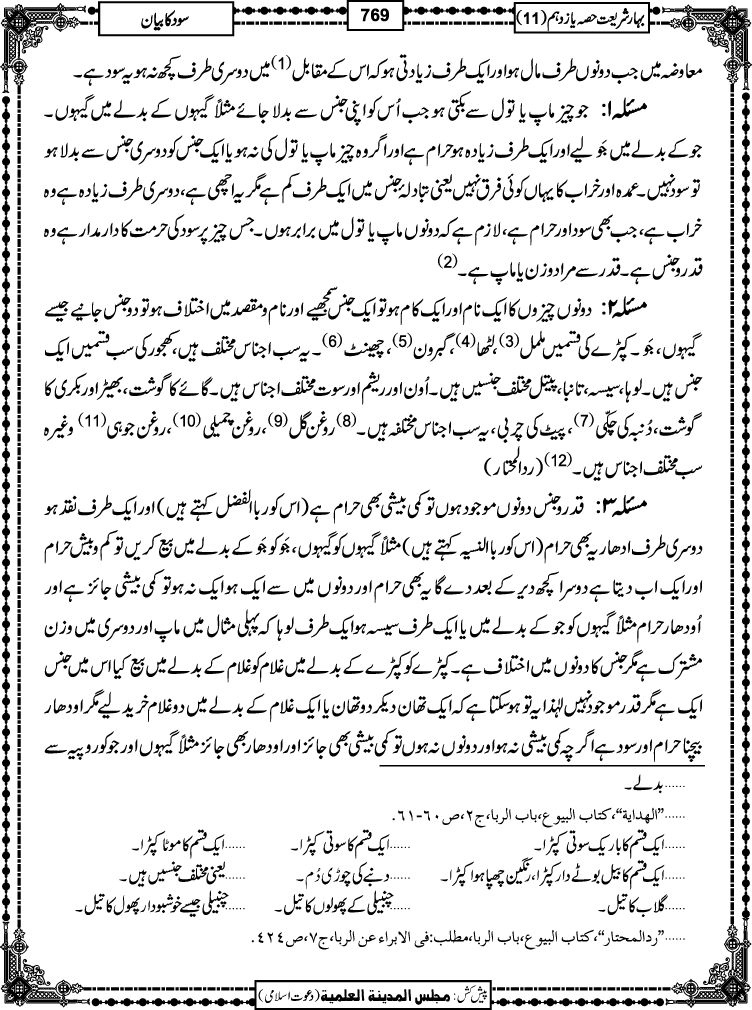 بہارِ شریعت حصہ یازدہم (11)
769
سود کا بیان
معاوضہ میں جب دونوں طرف مال ہو اور ایک طرف زیادتی ہو کہ اس کے مقابل (1) میں دوسری طرف کچھ نہ ہو یہ سود ہے۔
مسئلہ ۱: جو چیز ماپ یا تول سے بکتی ہو جب اُس کو اپنی جنس سے بدلا جائے مثلاً گیہوں کے بدلے میں گیہوں۔
جو کے بدلے میں جَو لیے اور ایک طرف زیادہ ہو حرام ہے اور اگر وہ چیز ماپ یا تول کی نہ ہو یا ایک جنس کو دوسری جنس سے بدلا ہو
تو سود نہیں۔ عمدہ اور خراب کا یہاں کوئی فرق نہیں یعنی تبادلۂ جنس میں ایک طرف کم ہے مگر یہ اچھی ہے، دوسری طرف زیادہ ہے وہ
خراب ہے، جب بھی سود اور حرام ہے، لازم ہے کہ دونوں ماپ یا تول میں برابر ہوں۔ جس چیز پر سود کی حرمت کا دارمدار ہے وہ
قدر و جنس ہے۔ قدر سے مراد وزن یا ماپ ہے۔ (2)
مسئلہ ۲: دونوں چیزوں کا ایک نام اور ایک کام ہو تو ایک جنس سمجھیے اور نام و مقصد میں اختلاف ہو تو دو جنس جانیے جیسے
گیہوں، جَو۔ کپڑے کی قسمیں ململ (3)، لٹھا (4)، گبرون (5)، چھینٹ (6)۔ یہ سب اجناس مختلف ہیں، کھجور کی سب قسمیں ایک
جنس ہیں۔ لوہا، سیسہ، تانبا، پیتل مختلف جنسیں ہیں۔ اُون اور ریشم اور سوت مختلف اجناس ہیں۔ گائے کا گوشت، بھیڑ اور بکری کا
گوشت، دُنبہ کی چکّی (7)، پیٹ کی چربی، یہ سب اجناس مختلفہ ہیں۔ (8) روغن گل (9)، روغن چمیلی (10)، روغن جوہی (11) وغیرہ
سب مختلف اجناس ہیں۔ (12) (ردالمحتار)
مسئلہ ۳: قدر و جنس دونوں موجود ہوں تو کمی بیشی بھی حرام ہے (اس کو ربا الفضل کہتے ہیں) اور ایک طرف نقد ہو
دوسری طرف ادھار یہ بھی حرام (اس کو ربا النسیہ کہتے ہیں) مثلاً گیہوں کو گیہوں، جَو کو جَو کے بدلے میں بیع کریں تو کم و بیش حرام
اور ایک اب دیتا ہے دوسرا کچھ دیر کے بعد دے گا یہ بھی حرام اور دونوں میں سے ایک ہو ایک نہ ہو تو کمی بیشی جائز ہے اور
اُودھار حرام مثلاً گیہوں کو جو کے بدلے میں یا ایک طرف سیسہ ہو ایک طرف لوہا کہ پہلی مثال میں ماپ اور دوسری میں وزن
مشترک ہے مگر جنس کا دونوں میں اختلاف ہے۔ کپڑے کو کپڑے کے بدلے میں غلام کو غلام کے بدلے میں بیع کیا اس میں جنس
ایک ہے مگر قدر موجود نہیں لہٰذا یہ تو ہو سکتا ہے کہ ایک تھان دیکر دو تھان یا ایک غلام کے بدلے میں دو غلام خرید لیے مگر اودھار
بیچنا حرام اور سود ہے اگرچہ کمی بیشی نہ ہو اور دونوں نہ ہوں تو کمی بیشی بھی جائز اور ادھار بھی جائز مثلاً گیہوں اور جو کو روپیہ سے
......بدلے۔
......"الھدایة"، کتاب البیوع، باب الربا، ج۲، ص۶۰-۶۱.
......ایک قسم کا باریک سوتی کپڑا۔ ......ایک قسم کا سوتی کپڑا۔ ......ایک قسم کا موٹا کپڑا۔
......ایک قسم کا بیل بوٹے دار کپڑا، رنگین چھپا ہوا کپڑا۔ ......دنبے کی چوڑی دُم۔ ......یعنی مختلف جنسیں ہیں۔
......گلاب کا تیل۔ ......چنبیلی کے پھولوں کا تیل۔ ......چنبیلی جیسے خوشبودار پھول کا تیل۔
......"ردالمحتار"، کتاب البیوع، باب الربا، مطلب: فی الابراء عن الربا، ج۷، ص۴۲۴.
پیش کش: مجلس المدینة العلمیة (دعوت اسلامی)